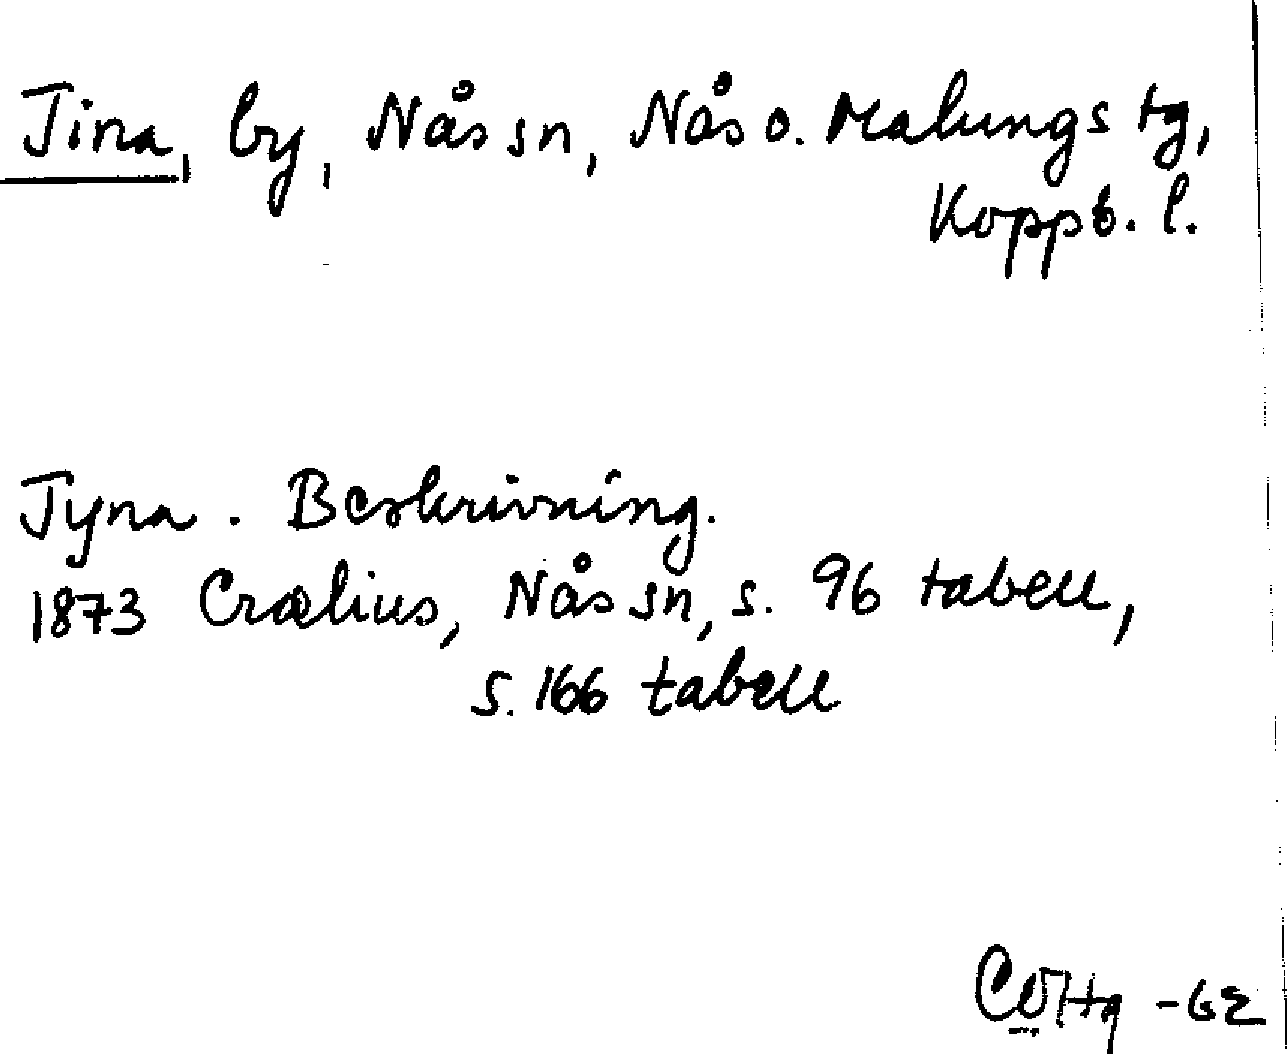 Tina, by, Nås sn, Nås o. Malungs tg,
Koppb. l.
Tyna. Beskrivning.
1873 Crælius, Nås sn, s. 96 tabell,
s. 166 tabell
-62